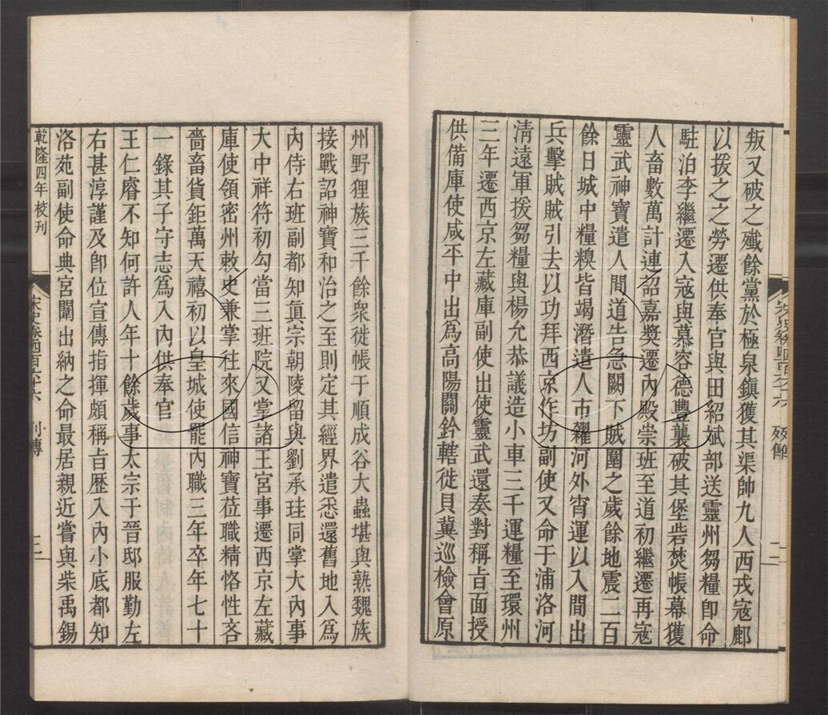 叛又破之殲餘黨於極泉鎮獲其渠帥九人西戎寇鄜
以援之之勞遷供奉官與田紹斌部送靈州芻糧卽命
駐泊李繼遷入寇與慕容德豐襲破其堡砦焚帳幕獲
人畜數萬計連詔嘉奬遷內殿崇班至道初繼遷再寇
靈武神寶遣人間道告急闕下賊圍之歲餘地震二百
餘日城中糧糗皆竭潛遣人市糴河外宵運以入間出
兵擊賊賊引去以功拜西京作坊副使又命于浦洛河
清遠軍援芻糧與楊允恭議造小車三千運糧至環州
三年遷西京左藏庫副使出使靈武還奏對稱旨面授
供備庫使咸平中出爲高陽關鈐轄徙貝冀巡檢會原
州野狸族三千餘衆徙帳于順成谷大蟲堪與熟魏族
接戰詔神寶和治之至則定其經界遣悉還舊地入爲
內侍右班副都知眞宗朝陵留與劉承珪同掌大內事
大中祥符初勾當三班院又掌諸王宮事遷西京左藏
庫使領密州敕史兼掌往來國信神寶莅職精恪性吝
嗇畜貨鉅萬天禧初以皇城使罷內職三年卒年七十
一錄其子守志爲入內供奉官
王仁睿不知何許人年十餘歲事太宗于晉邸服勤左
右甚淳謹及卽位宣傳指揮頗稱旨歷入內小底都知
洛苑副使命典宮闈出納之命最居親近嘗與柴禹錫
乾隆四年校刊
宋史卷四百六十六 列傳